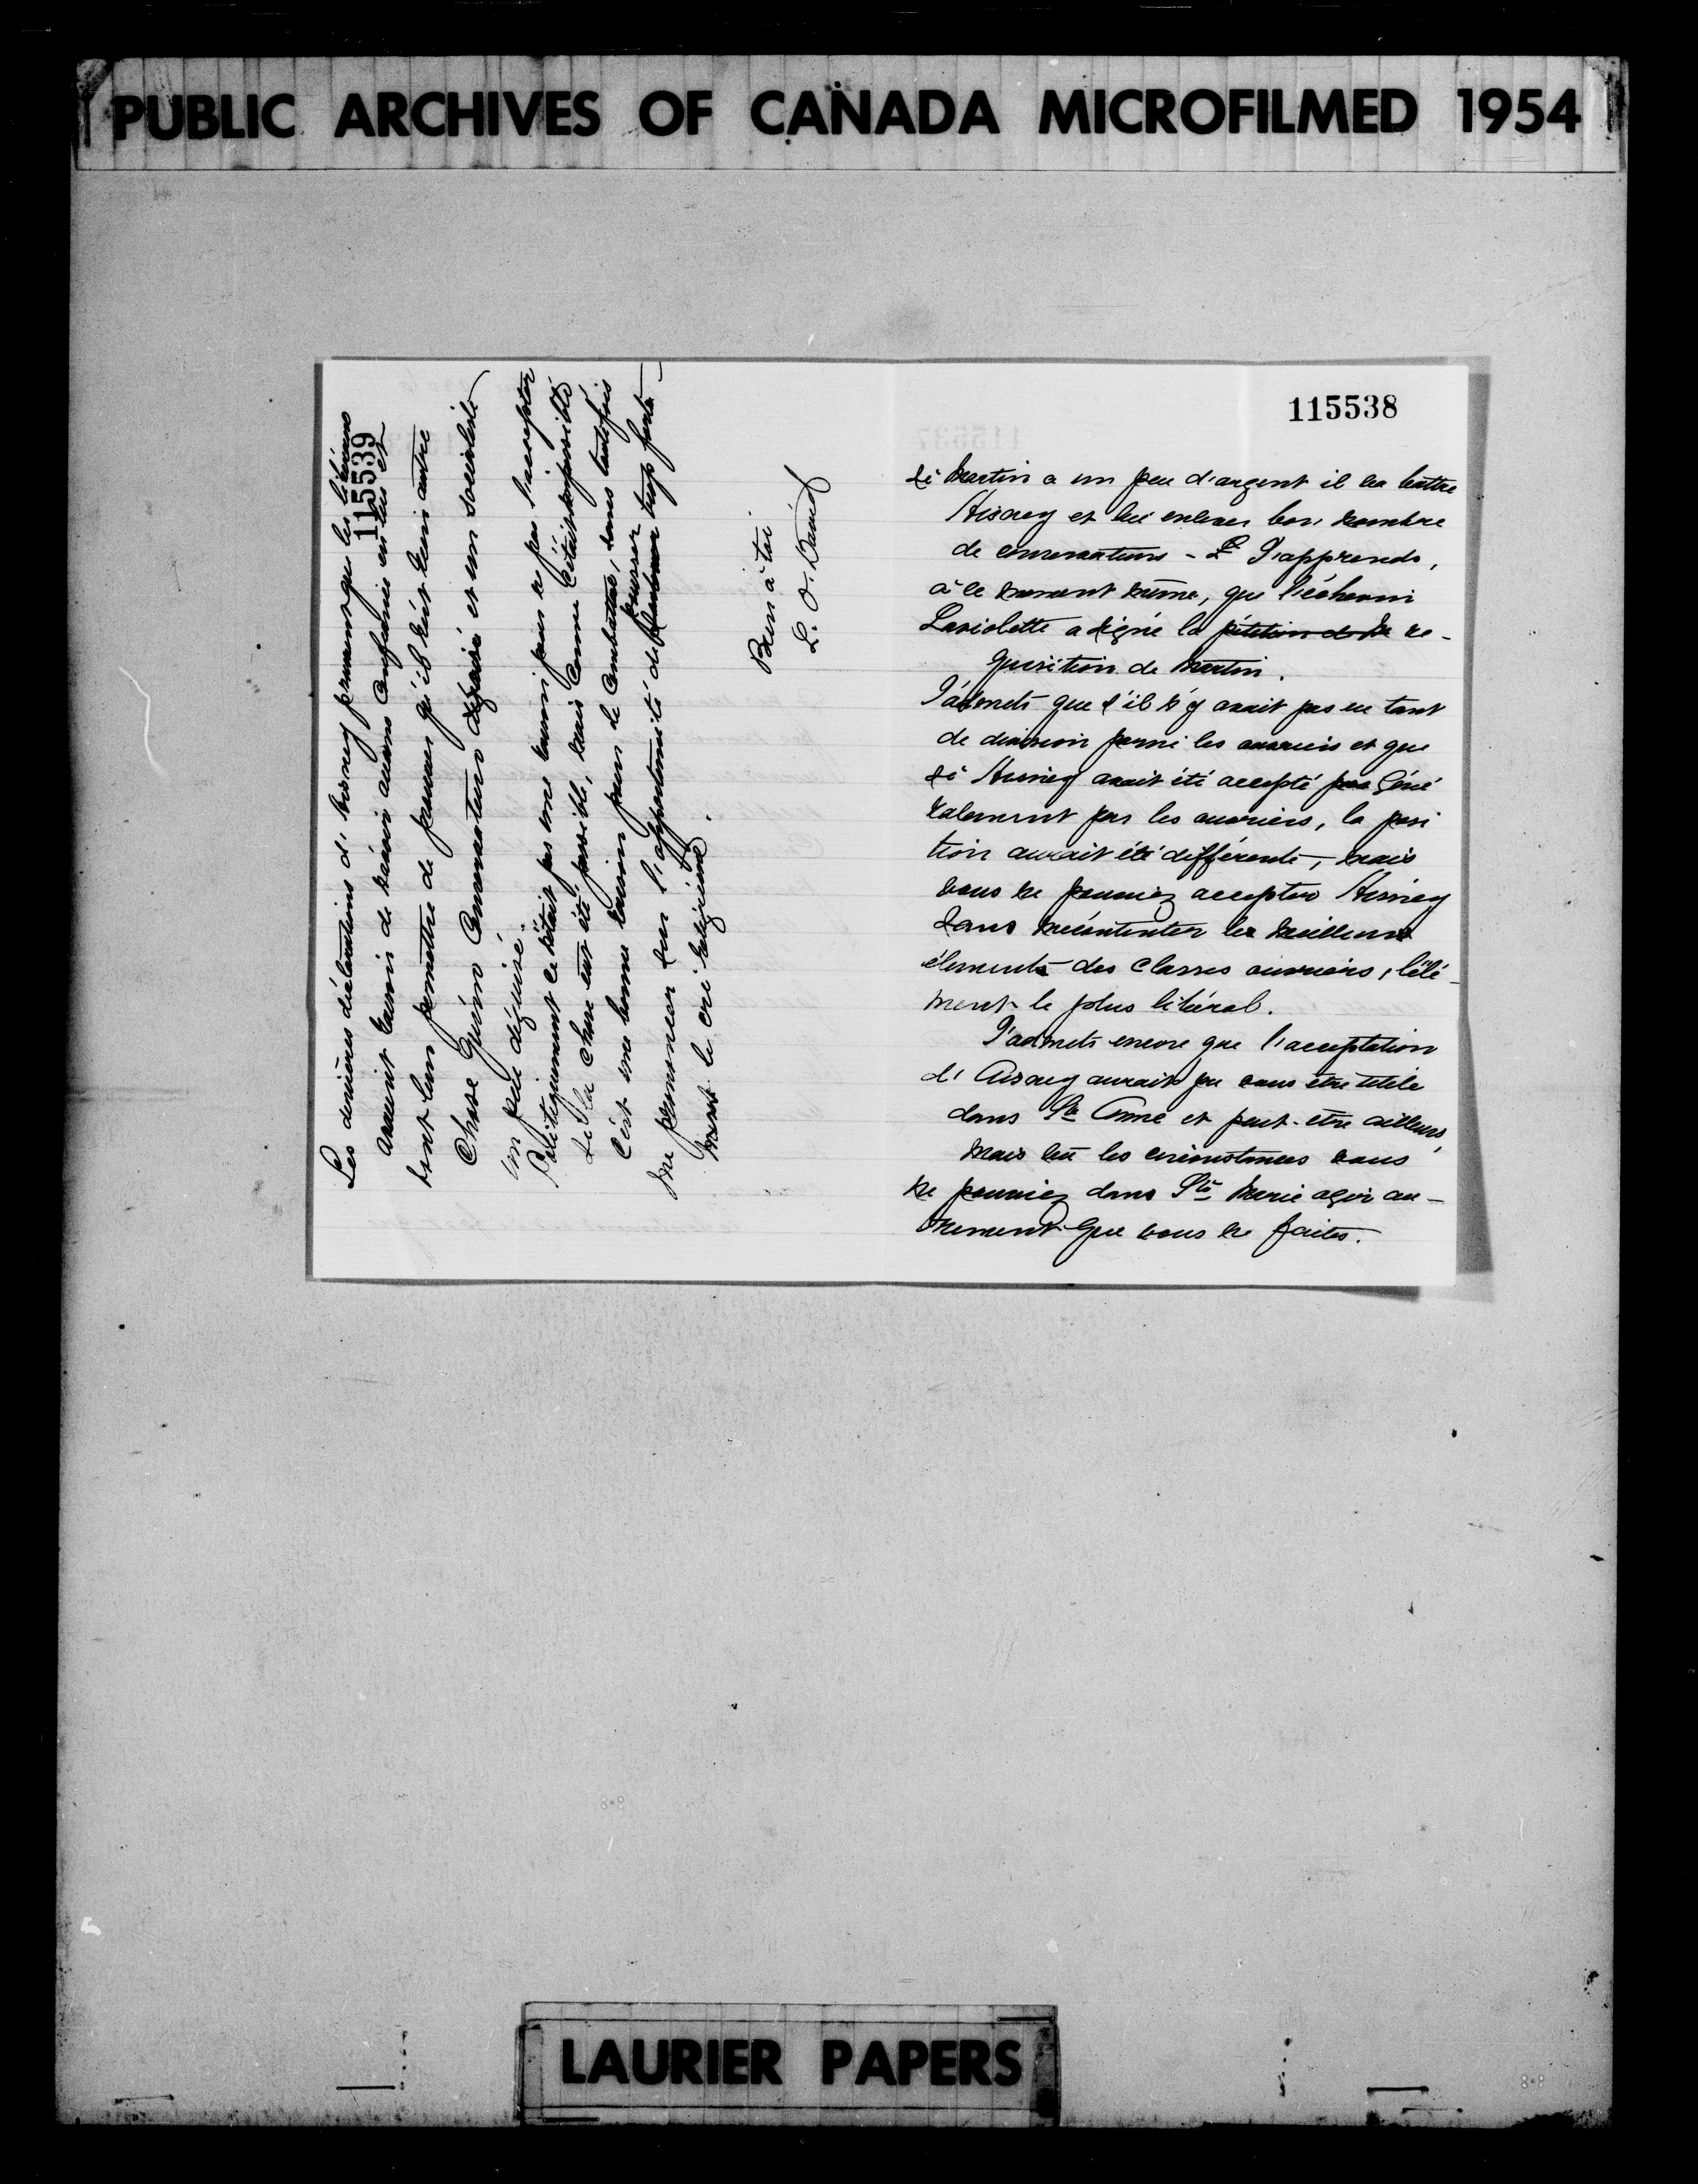 PUBLIC ARCHIVES OF CANADA MICROFILMED 1954
115538
si Martin a un peu d'argent il va battre
Ainey et lui enlever bon nombre
de conservateurs - J'apprends,
à ce moment même, que l'échevin
Lariolette a signé la pétition de re-
quisition de Martin.
J'admets que s'il n'y avait pas eu tant
de division parmi les ouvriers et que
si Ainey avait été accepté par géné
ralement par les ouvriers, la posi
tion aurait été différente, mais
vous ne pouviez accepter Ainey
sans mécontenter les meilleurs
éléments des classes ouvrières, l'élé-
ment le plus libéral.
J'admets encore que l'acceptation
d'Ainey aurait pu vous être utile
dans Ste Anne et peut-être ailleurs,
mais vu les circonstances vous
ne pouviez dans Ste Marie agir au-
trement que vous ne faites.
115539
Les dernières déclarations d'Ainey prouvent que les libéraux
auraient tort de n'avoir aucune confiance en lui et
font bien permettre de penser qu'il n'est rien autre
chose qu'un conservateur déguisé et un socialiste
un peu déguisé.
Politiquement ce n'était pas une raison pour ne pas l'accepter
si la chose eut été possible, mais comme c'était impossible
c'est une bonne raison pour le combattre, sans toutefois
pousser trop fort
me prononcer sur l'opportunité de
le cri religieux.
Bien à toi
L. O. David
LAURIER PAPERS